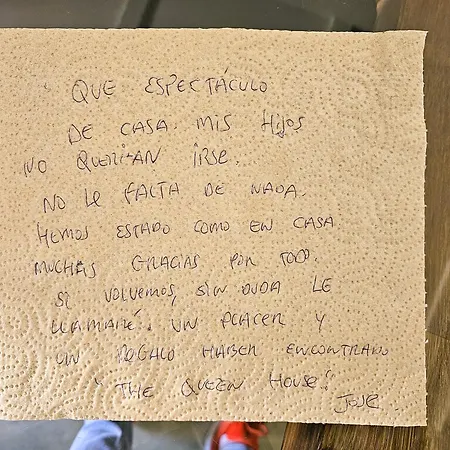 QUE ESPECTÁCULO
DE CASA. MIS HIJOS
NO QUERÍAN IRSE.
NO LE FALTA DE NADA.
HEMOS ESTADO COMO EN CASA
MUCHAS GRACIAS POR TODO.
SI VOLVEMOS, SIN DUDA LE
LLAMARÉ. UN PLACER Y
UN REGALO HABER ENCONTRADO
"THE QUEEN HOUSE!